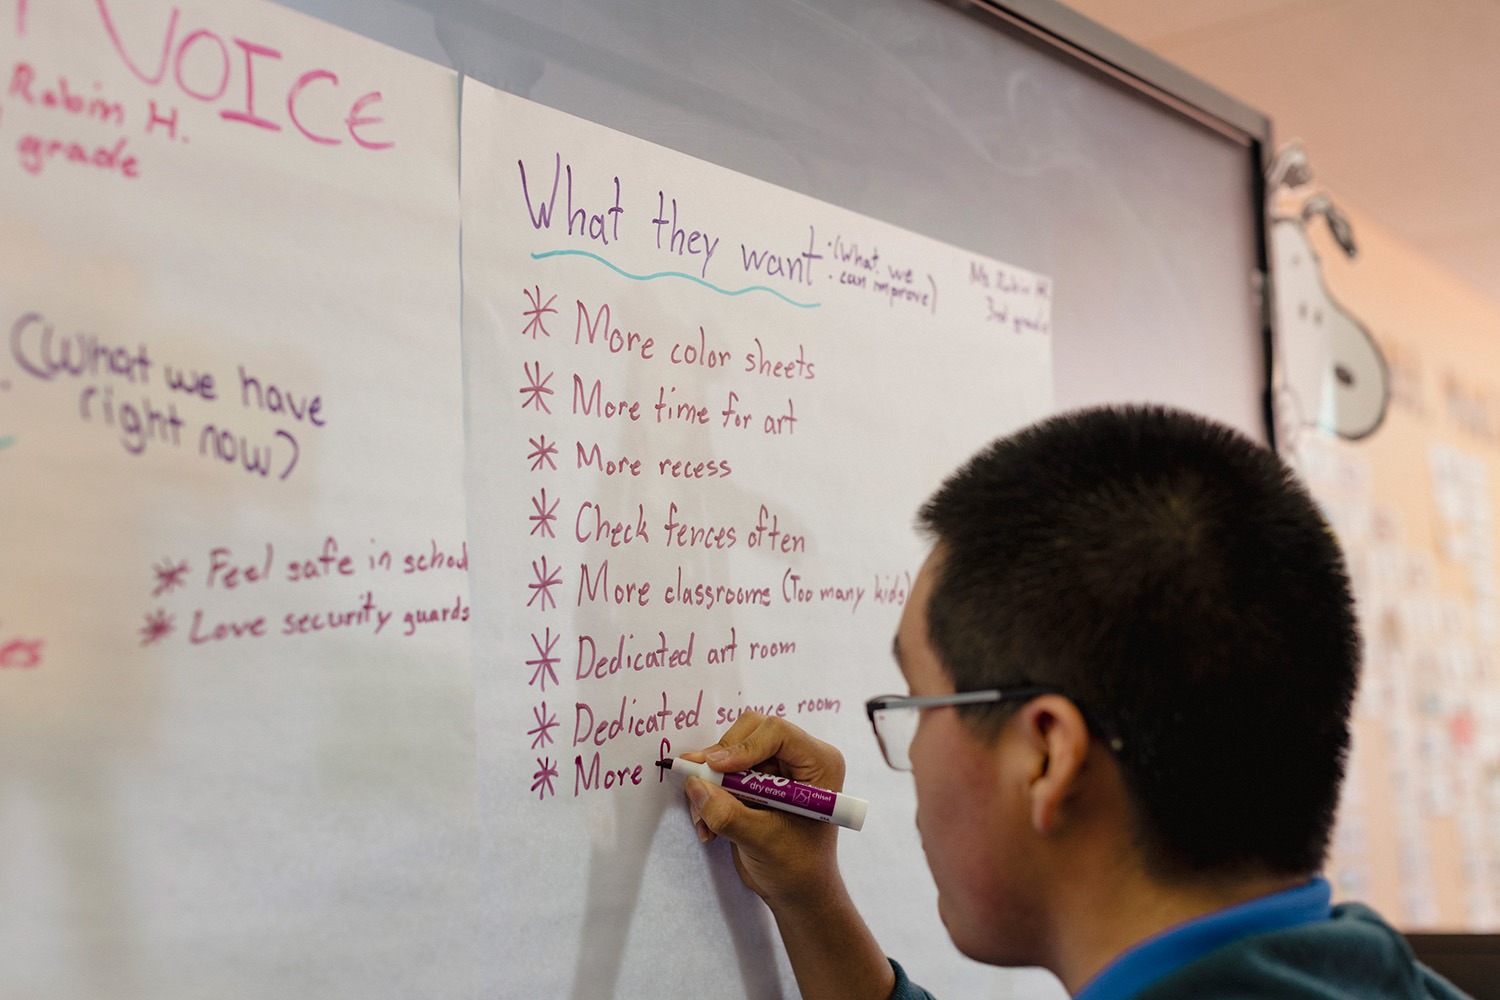 VOICE
Robin H.
grade
(What we have
right now)
* Feel safe in school
* Love security guards
es
What they want
• (What we
• can improve)
Ms Robin H
3rd grade
* More color sheets
* More time for art
* More recess
* Check fences often
* More classrooms (Too many kids)
* Dedicated art room
* Dedicated science room
* More f
EXPO
dry erase
chisel